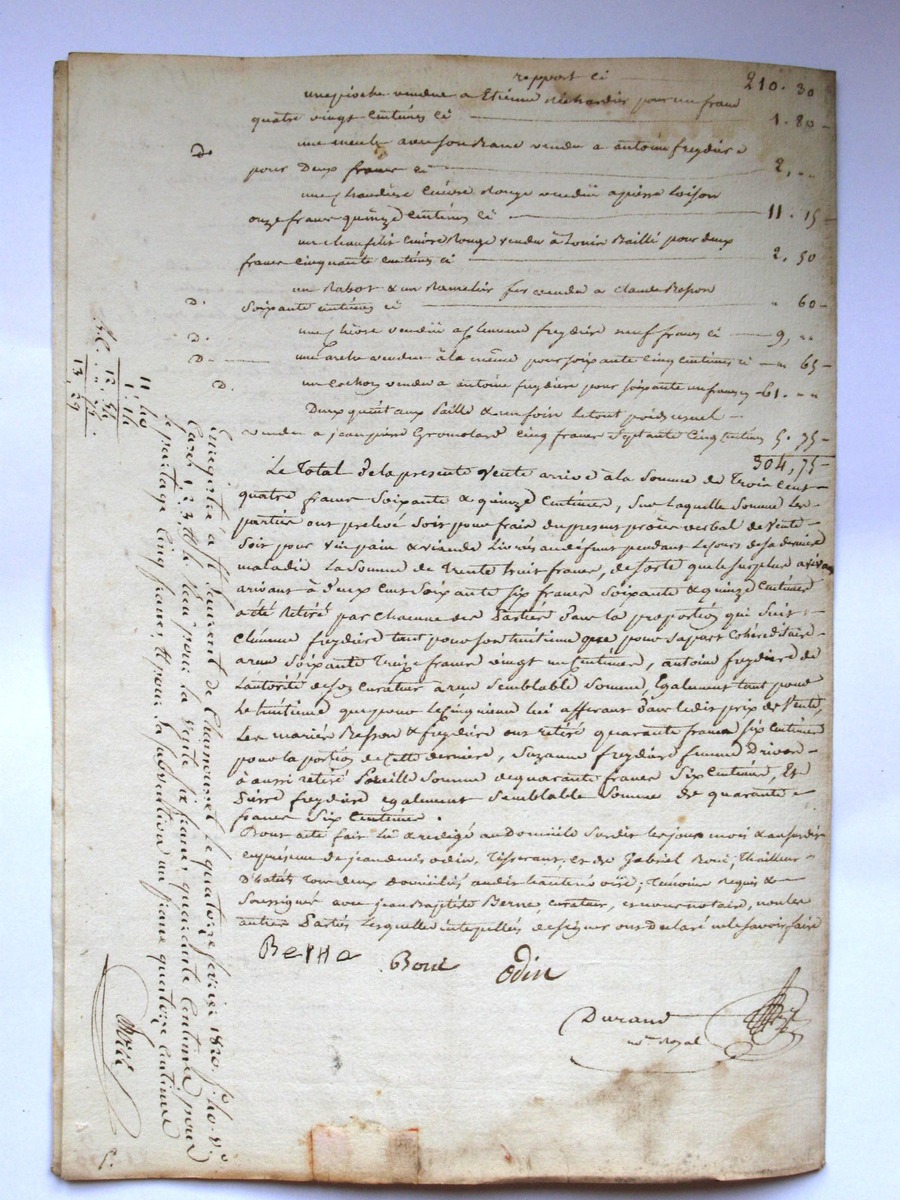 report ci 210. 30
une pioche vendue a Etienne Richardier pour un franc
quatre vingt centimes ci 1. 80
une meule avec son vendu a antoine freydiere
pour Deux francs ci 2, ..
une chaudiere Cuivre Rouge vendüe a pierre Loison
onze francs quinze Centimes ci 11. 15
un cuivre Rouge vendu à Louis Bailli pour deux
francs Cinquante Centimes ci 2. 50
un Rabot & un vendu a Claude Besson
d. Soixante centimes ci " 60
d. une vendüe a freydiere neuf francs ci 9, ..
d. une vendue à la même pour soixante cinq centimes ci " 65
d. un Cochon vendu a antoine freydiere pour soixante un francs 61. ..
Deux quintaux Paille & un foin le tout
vendu a jean pierre Gromolard Cinq francs Septante Cinq Centimes 5. 75
304, 75
Le Total de la presente Vente arrive à la Somme de Trois Cent
quatre francs Soixante & quinze Centimes, Sur Laquelle Somme Les
parties ont prelevé Soit pour frais du present procès verbal de Vente
Soit pour vin pain & viande Livrés au défunt pendant le jours de sa derniere
maladie La Somme de Trente huit francs, de sorte que le Surplus
arrivant à Deux Cent Soixante Six francs Soixante & quinze Centimes
a été Retiré par Chacune des Parties Dans la proportion qui Suit :
freydiere tant pour son huitieme que pour sa part Cohéreditaire
a reçu Soixante Treize francs vingt un Centimes, antoine freydiere de
L'autorité de son Curateur a reçu Semblable Somme, Egalement tant pour
Le huitieme que pour Le Cinquieme lui afferant Dans ledit prix de Vente,
Les mariés Besson & freydiere ont retiré quarante francs Six Centimes
pour la portion de Cette derniere, Suzanne freydiere femme Drivon
a aussi retiré Pareille Somme de quarante francs Six Centimes, Et
Pierre freydiere egalement Semblable Somme de quarante
francs Six Centimes.
Dont acte fait Lu & redigé au Domicile Susdit les jour mois & an susdits
en presence de jean denis odin, Tisserant, et de Gabriel Boué, Thailleur
D'habits Tous deux domiciliés audit ; Temoins Requis &
Soussignés avec jean Baptiste Berne, Curateur, et nous notaire, non les
autres Parties Lesquelles interpellées de signer ont Declaré ne le savoir faire
Berna Boué Odin
Durand
nre Royal
Enregistré a St Laurent de Chamousset le quatorze fevrier 1820, fo 40 Vo
Cases 1. 2. 3, et la pour la vente six francs quarante Centimes, pour
le partage Cinq francs, et pour la subvention un franc quatorze Centimes
11, 40
1, 14
12, 54
13, 29